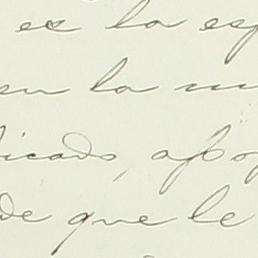 es la esp
en la m
licado, apoy
de que le